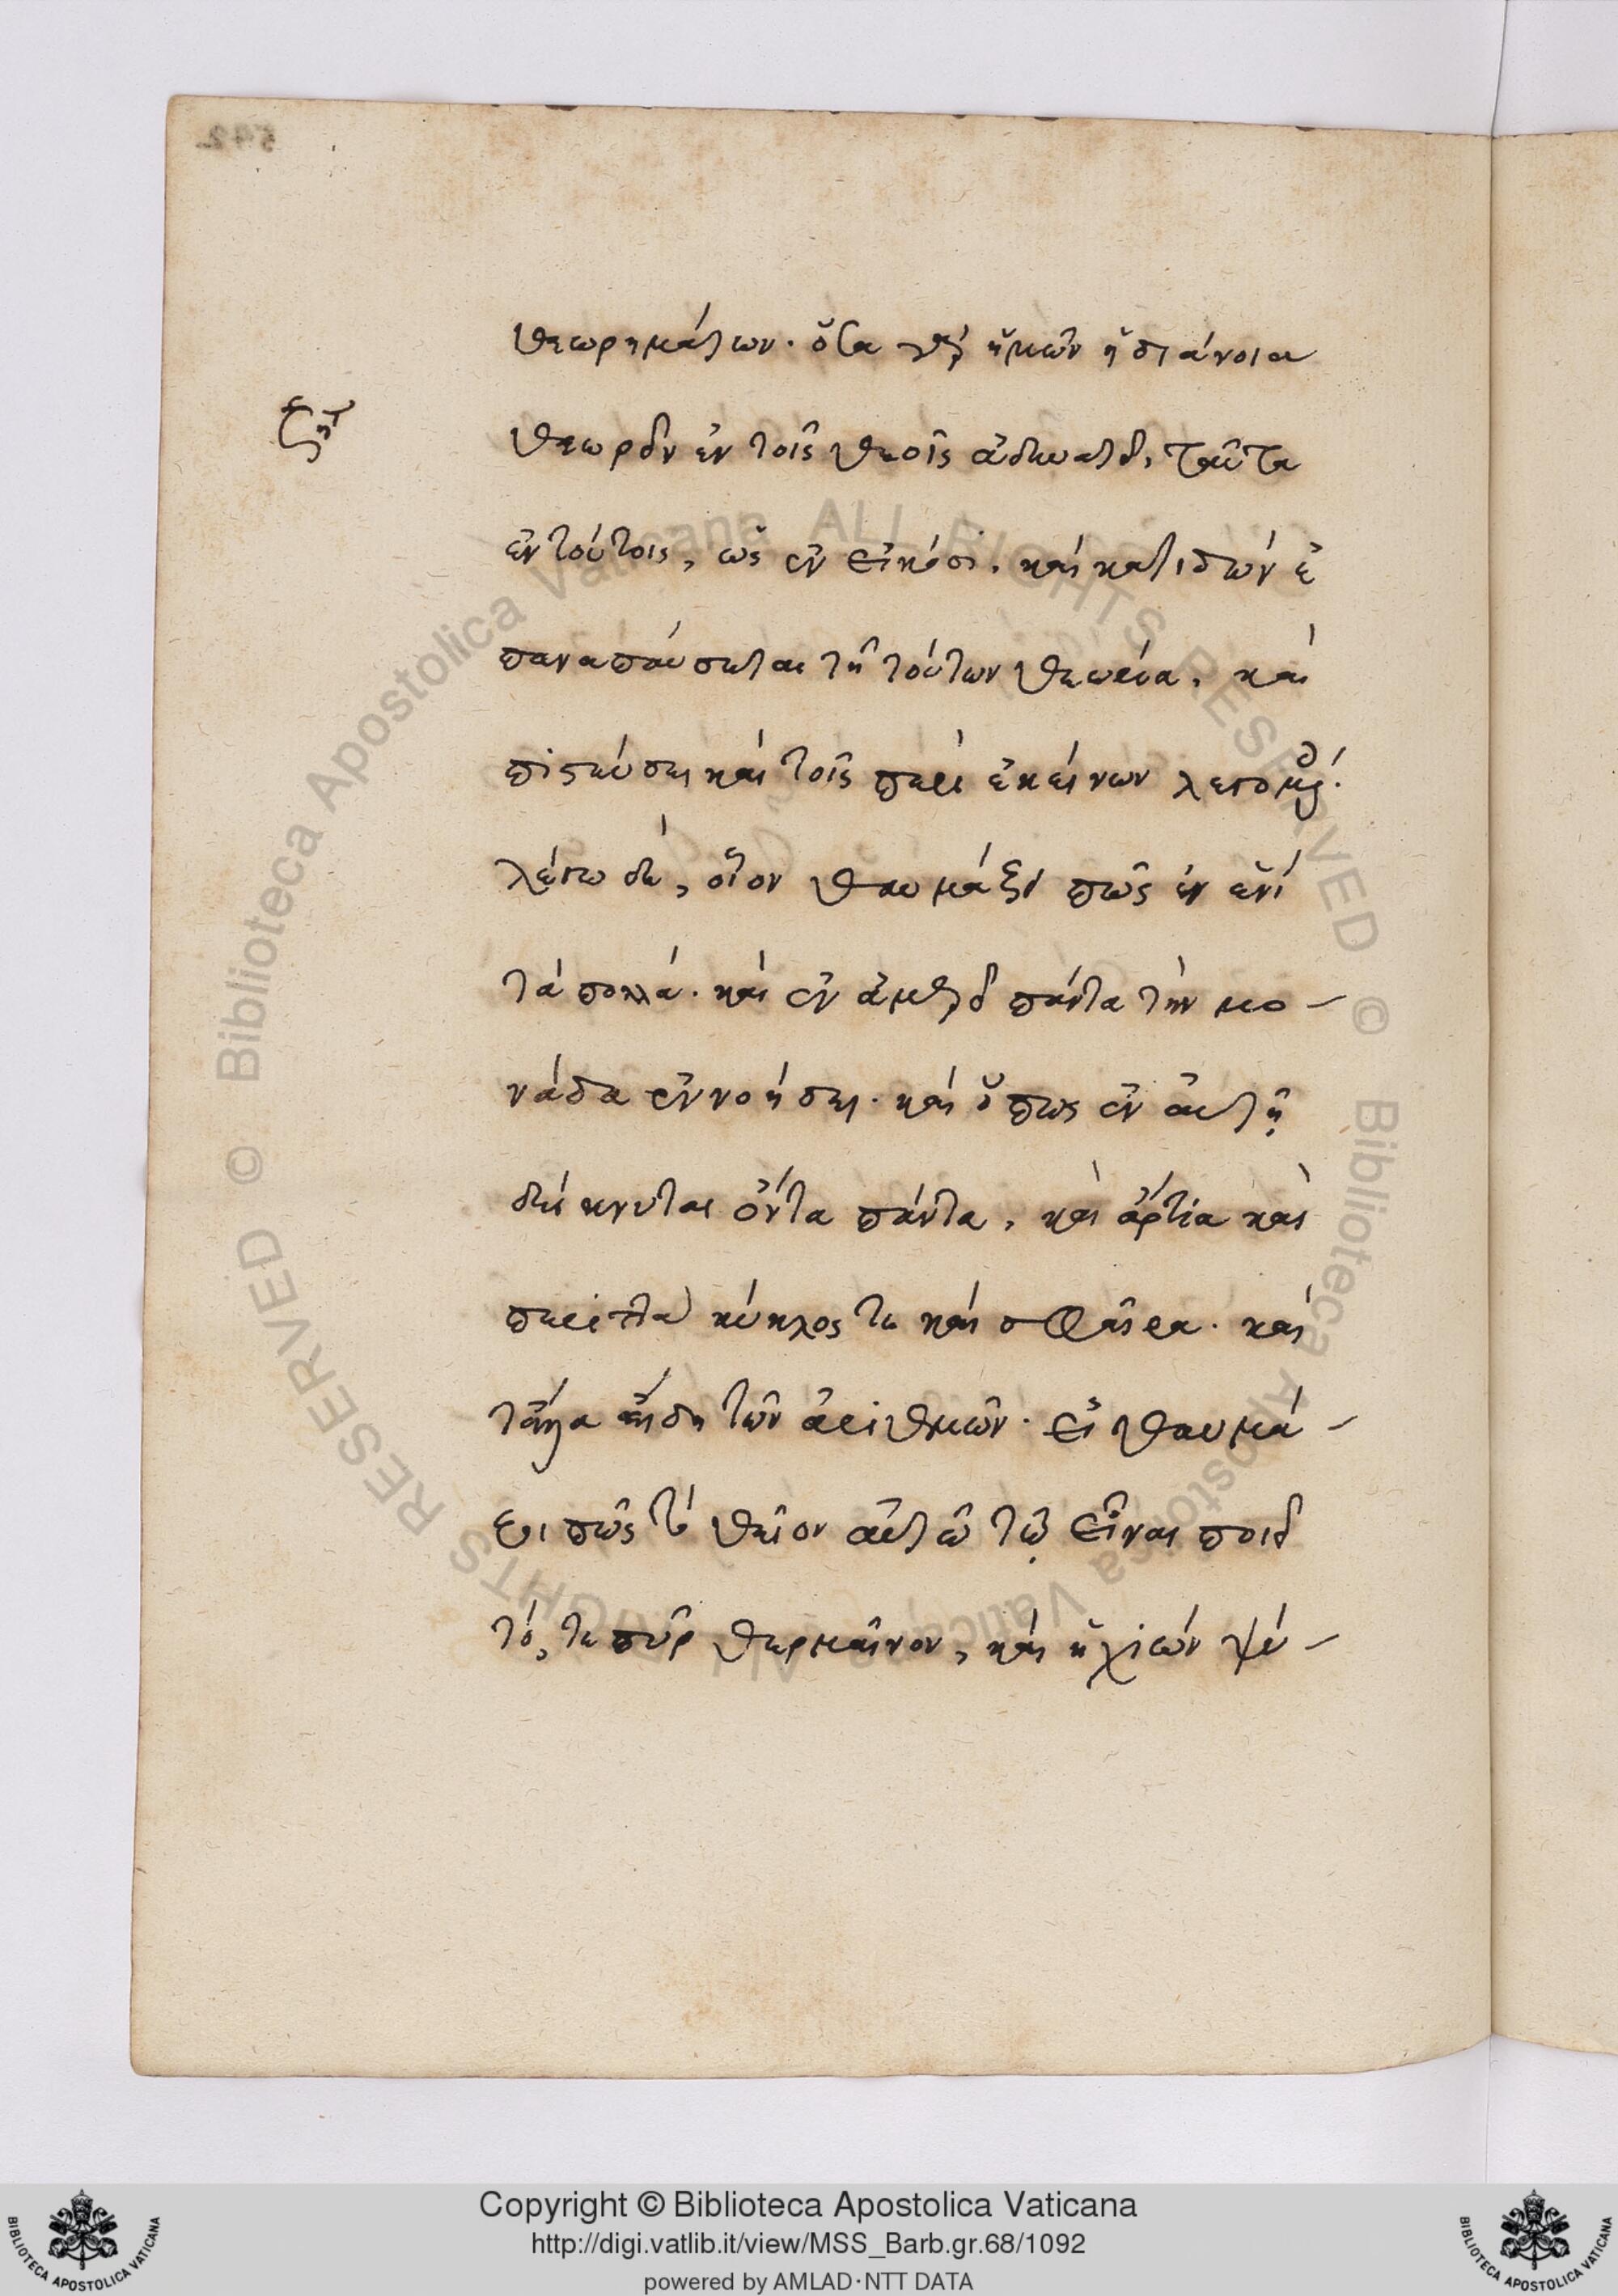 θεωρημάτων. ὅσα γὰρ ἡμῶν ἡ διάνοια
θεωρεῖν ἐν τοῖς θεοῖς ἀδυνατεῖ, ταῦτα
ἐν τούτοις, ὡς ἐν εἰκόσι. καὶ κατιδὼν ἐ
παναπαύσεται τῇ τούτων θεωρία, καὶ
πιστεύσει καὶ τοῖς περὶ ἐκείνων λεγομένοις.
λέγω δὲ, οἷον θαυμάζει πῶς ἐν ἑνὶ
τὰ πολλά. καὶ ἐν ἀμερεῖ πάντα τὴν μο-
νάδα ἐννοήσει. καὶ ὅπως ἐν αὐτῇ
δείκνυται ὄντα πάντα, καὶ ἄρτια καὶ
περιττὰ κύκλος τε καὶ σφαῖρα. καὶ
τἄλλα εἴδη τῶν ἀριθμῶν. εἰ θαυμά-
ζει πῶς τὸ θεῖον αὐτῶ τῷ εἶναι ποιεῖ
τό, τε πῦρ θερμαῖνον, καὶ ἡ χιὼν ψύ-
592
Copyright © Biblioteca Apostolica Vaticana
http://digi.vatlib.it/view/MSS_Barb.gr.68/1092
powered by AMLAD·NTT DATA
BIBLIOTECA APOSTOLICA VATICANA
BIBLIOTECA APOSTOLICA VATICANA
© Biblioteca Apostolica Vaticana ALL RIGHTS RESERVED © Biblioteca Apostolica Vaticana ALL RIGHTS RESERVED